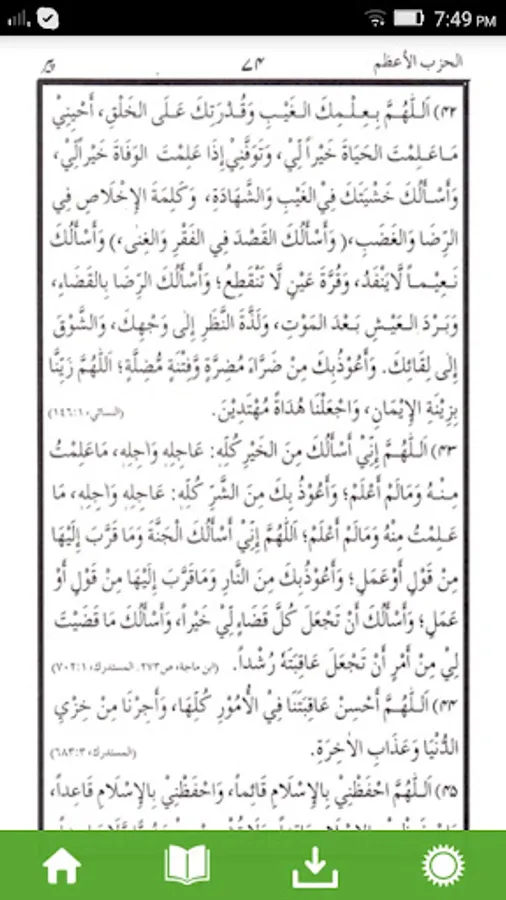 7:49 PM
الحزب الأعظم ٧٤ پیر
٤٢) اَللّٰهُمَّ بِعِلْمِكَ الغَيْبِ وَقُدْرَتِكَ عَلَى الخَلْقِ، أَحْيِنِيْ
مَا عَلِمْتَ الحَيَاةَ خَيْراً لِّيْ، وَتَوَفَّنِيْ إِذَا عَلِمْتَ الوَفَاةَ خَيْراً لِّيْ،
وَأَسْأَلُكَ خَشْيَتَكَ فِيْ الغَيْبِ وَالشَّهَادَةِ، وَكَلِمَةَ الإِخْلَاصِ فِي
الرِّضَا وَالغَضَبِ، (وَأَسْأَلُكَ القَصْدَ فِي الفَقْرِ وَالغِنٰى،) وَأَسْأَلُكَ
نَعِيْماً لَّا يَنْفَدُ، وَقُرَّةَ عَيْنٍ لَّا تَنْقَطِعُ؛ وَأَسْأَلُكَ الرِّضَا بِالقَضَاءِ،
وَبَرْدَ العَيْشِ بَعْدَ المَوْتِ، وَلَذَّةَ النَّظَرِ إِلٰى وَجْهِكَ، وَالشَّوْقَ
إِلٰى لِقَائِكَ. وَأَعُوْذُ بِكَ مِنْ ضَرَّاءَ مُضِرَّةٍ وَّفِتْنَةٍ مُّضِلَّةٍ؛ اَللّٰهُمَّ زَيِّنَّا
بِزِيْنَةِ الإِيْمَانِ، وَاجْعَلْنَا هُدَاةً مُهْتَدِيْنَ. (النسائي ١:١٤٦)
٤٣) اَللّٰهُمَّ إِنِّيْ أَسْأَلُكَ مِنَ الخَيْرِ كُلِّهٖ: عَاجِلِهٖ وَآجِلِهٖ، مَا عَلِمْتُ
مِنْهُ وَمَا لَمْ أَعْلَمْ؛ وَأَعُوْذُ بِكَ مِنَ الشَّرِّ كُلِّهٖ: عَاجِلِهٖ وَآجِلِهٖ، مَا
عَلِمْتُ مِنْهُ وَمَا لَمْ أَعْلَمْ؛ اَللّٰهُمَّ إِنِّيْ أَسْأَلُكَ الْجَنَّةَ وَمَا قَرَّبَ إِلَيْهَا
مِنْ قَوْلٍ أَوْ عَمَلٍ؛ وَأَعُوْذُ بِكَ مِنَ النَّارِ وَمَا قَرَّبَ إِلَيْهَا مِنْ قَوْلٍ أَوْ
عَمَلٍ؛ وَأَسْأَلُكَ أَنْ تَجْعَلَ كُلَّ قَضَاءٍ لِّيْ خَيْراً، وَأَسْأَلُكَ مَا قَضَيْتَ
لِيْ مِنْ أَمْرٍ أَنْ تَجْعَلَ عَاقِبَتَهٗ رُشْداً. (ابن ماجة، ص ٢٧٣، المستدرك، ١:٧٠٢)
٤٤) اَللّٰهُمَّ أَحْسِنْ عَاقِبَتَنَا فِيْ الأُمُوْرِ كُلِّهَا، وَأَجِرْنَا مِنْ خِزْيِ
الدُّنْيَا وَعَذَابِ الآخِرَةِ. (المستدرك، ٣:٦٨٣)
٤٥) اَللّٰهُمَّ احْفَظْنِيْ بِالإِسْلَامِ قَائِماً، وَاحْفَظْنِيْ بِالإِسْلَامِ قَاعِداً،